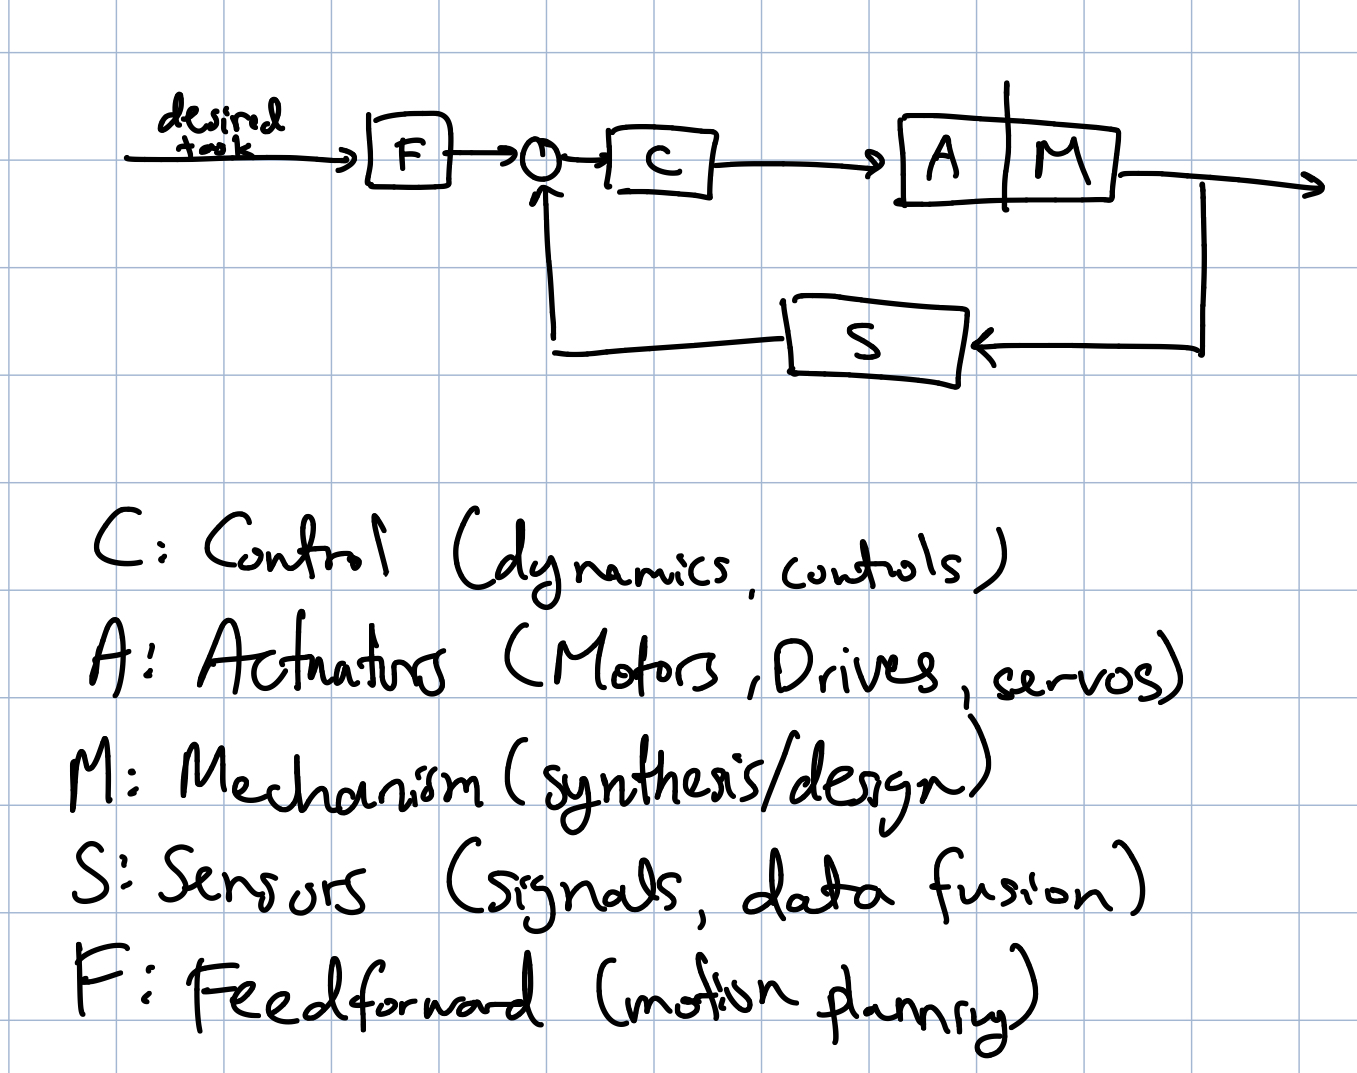 desired
task
F
C
A
M
S
C: Control (dynamics, controls)
A: Actuators (Motors, Drives, servos)
M: Mechanism (synthesis/design)
S: Sensors (signals, data fusion)
F: Feedforward (motion planning)